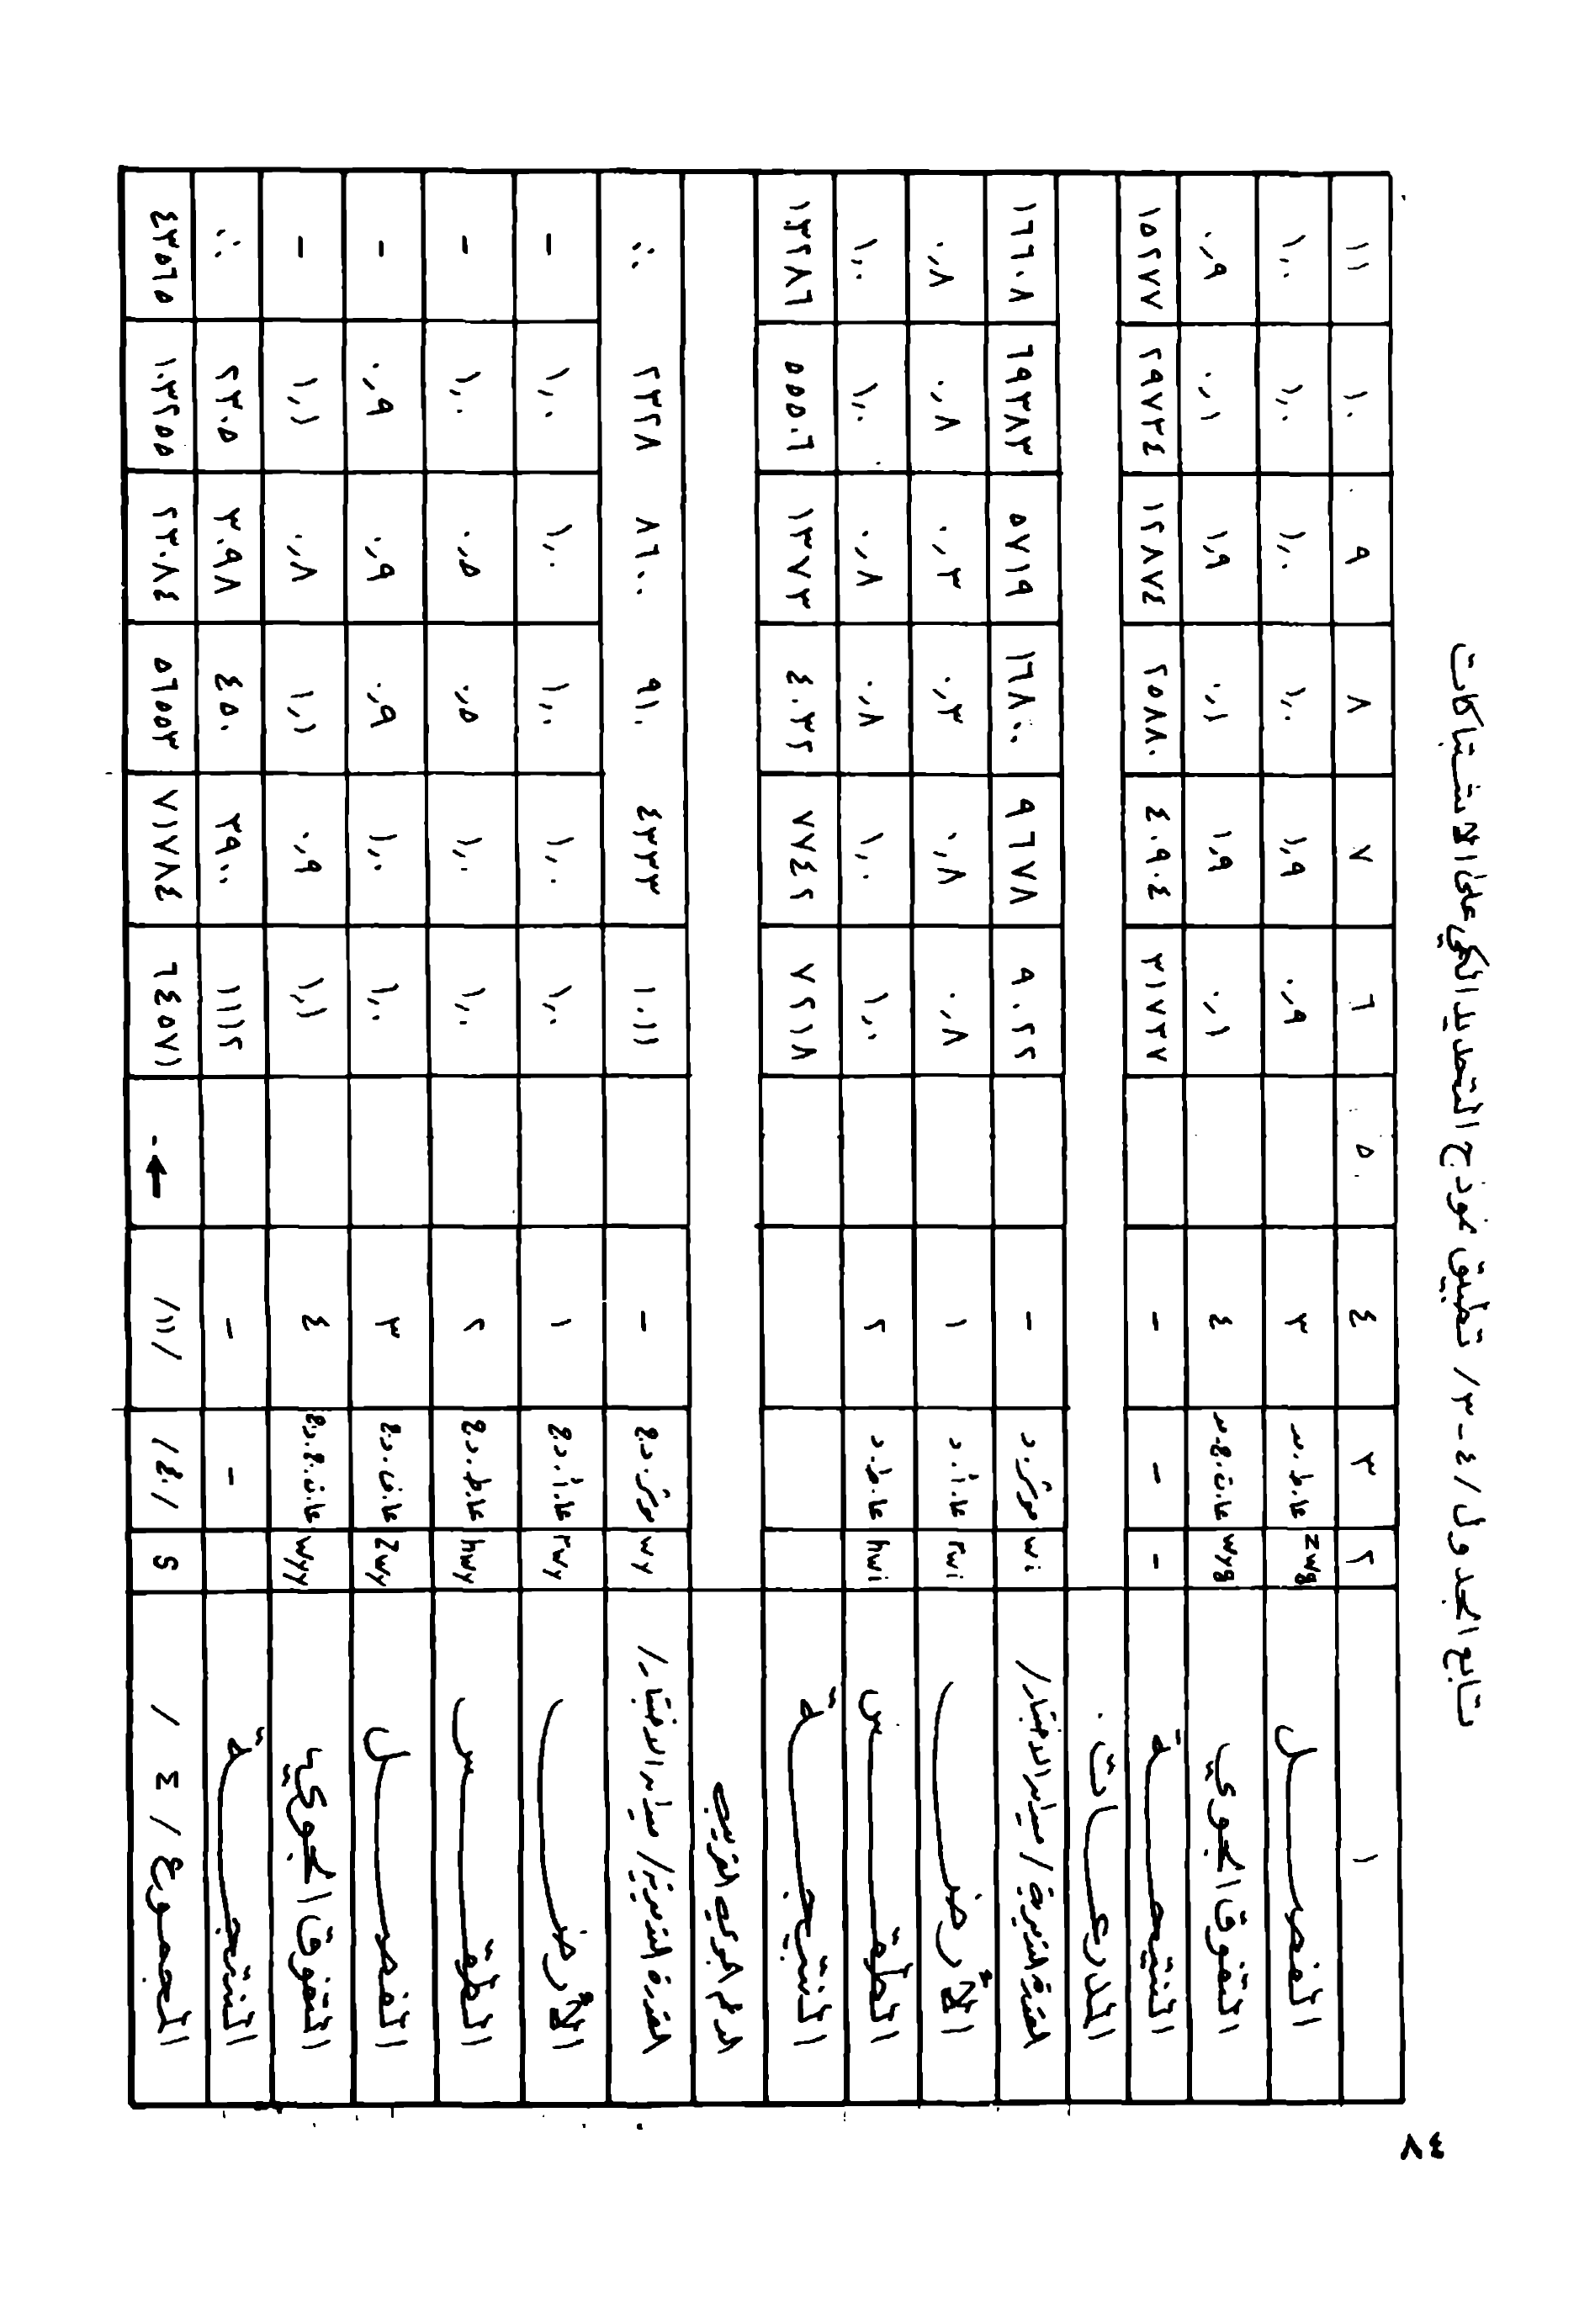 تابع الجدول /٤-٣/ تطبيق نموذج التحديد الكمي على الاشتباكات
١ ٢ ٣ ٤ ٥ ٦ ٧ ٨ ٩ ١٠ ١١
الفصل zwg ٣ ٠,٩ ١,٩ ١,٠ ١,٠ ١,٠ ١,٠
التفوق الجوي wyg ٤ ٠,١ ١,٩ ٠,١ ١,٩ ٠,١ ٠,٩
النتيجة - - - ٣١٧٣٧ ٤٠٩٠٤ ٢٥٨٨٠ ١٢٨٧٤ ٢٩٧٣٤ ١٥٢٧٧
المدرعات
القدرة النيرية /ميدان الاختبار/ wi موثر.د - ٩٠٢٢ ٩٦٧٨ ١٦٨٠٠ ٥٧١٩ ٦٩٣٨٣ ١٦٦٠٨
الأرض rwi عا.أ.د ١ ٠,٨ ٠,٨ ٠,٣ ٠,٣ ٠,٨ ٠,٨
الطقس hwi عا.ط.د ٢ ١,٠ ١,٠ ٠,٨ ٠,٨ ١,٠ ١,٠
النتيجة ٧٢١٨ ٧٧٤٢ ٤٠٣٢ ١٣٧٣ ٥٥٥٠٦ ١٣٢٨٦
الدعم الجوي القريب
القدرة النيرية /ميدان الاختبار/ wy موثر.د.ع - ١٠١١ ٤٣٣٣ ٩١٠ ٨٦٠٠ ٢٣٢٨ ٠٠
الأرض rwy عا.أ.د.ع ١ ١,٠ ١,٠ ١,٠ ١,٠ ١,٠ -
الطقس hwy عا.ط.د.ع ٢ ١,٠ ١,٠ ٠,٥ ٠,٥ ١,٠ -
الفصل zwy عا.ف.د.ع ٣ ١,٠ ١,٠ ٠,٩ ٠,٩ ٠,٩ -
التفوق الجوي wyy عا.ت.ج.د.ع ٤ ١,١ ٠,٩ ١,١ ٠,٨ ١,١ -
النتيجة - - ١١١٢ ٣٩٠٠ ٤٥٠ ٣٠٩٨ ٢٣٠٥ ٠٠
المجموع / Σ / S /ع/ /١١/ ← ٦٤٥٧١ ٧١٧٨٤ ٥٦٥٥٣ ٢٣٠٨٤ ١٠٣٢٥٥ ٤٣٥٦٥
٨٤